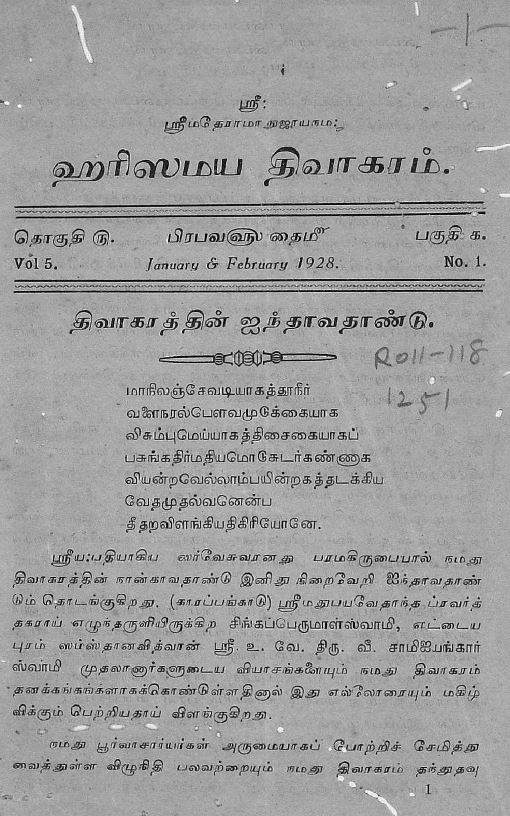 -1-
ஸ்ரீ:
ஸ்ரீமதேராமாநுஜாயநம:
ஹரிஸமய திவாகரம்.
தொகுதி ௫. பிரபவ௵ தை௴ பகுதி ௧.
Vol 5. January & February 1928. No. 1.
திவாகரத்தின் ஐந்தாவதாண்டு.
R011-118
1251
மாநிலஞ்சேவடியாகத்தூநீர்
வளைநரல்பௌவமுடுக்கையாக
விசும்புமெய்யாகத்திசைகையாகப்
பசுங்கதிர்மதியமொடுசுடர்கண்ணாக
வியன்றவெல்லாம்பயின்றகத்தடக்கிய
வேதமுதல்வனென்ப
தீதறவிளங்கியதிகிரியோனே.
ஸ்ரீய:பதியாகிய ஸர்வேசுவரனது பரமகிருபையால் நமது
திவாகரத்தின் நான்காவதாண்டு இனிது நிறைவேறி ஐந்தாவதாண்
டும் தொடங்குகிறது. (காரப்பங்காடு) ஸ்ரீமதுபயவேதாந்த ப்ரவர்த்
தகராய் எழுந்தருளியிருக்கிற சிங்கப்பெருமாள்ஸ்வாமி, எட்டைய
புரம் ஸம்ஸ்தானவித்வான் ஸ்ரீ. உ. வே. திரு. வீ. சாமிஐயங்கார்
ஸ்வாமி முதலானூர்களுடைய வியாசங்களையும் நமது திவாகரம்
தனக்கங்கங்களாகக்கொண்டுள்ளதினால் இது எல்லோரையும் மகிழ்
விக்கும் பெற்றியதாய் விளங்குகிறது.
நமது பூர்வாசார்யர்கள் அருமையாகப் போற்றிச் சேமித்து
வைத்துள்ள விழுநிதி பலவற்றையும் நமது திவாகரம் தந்துதவு
1